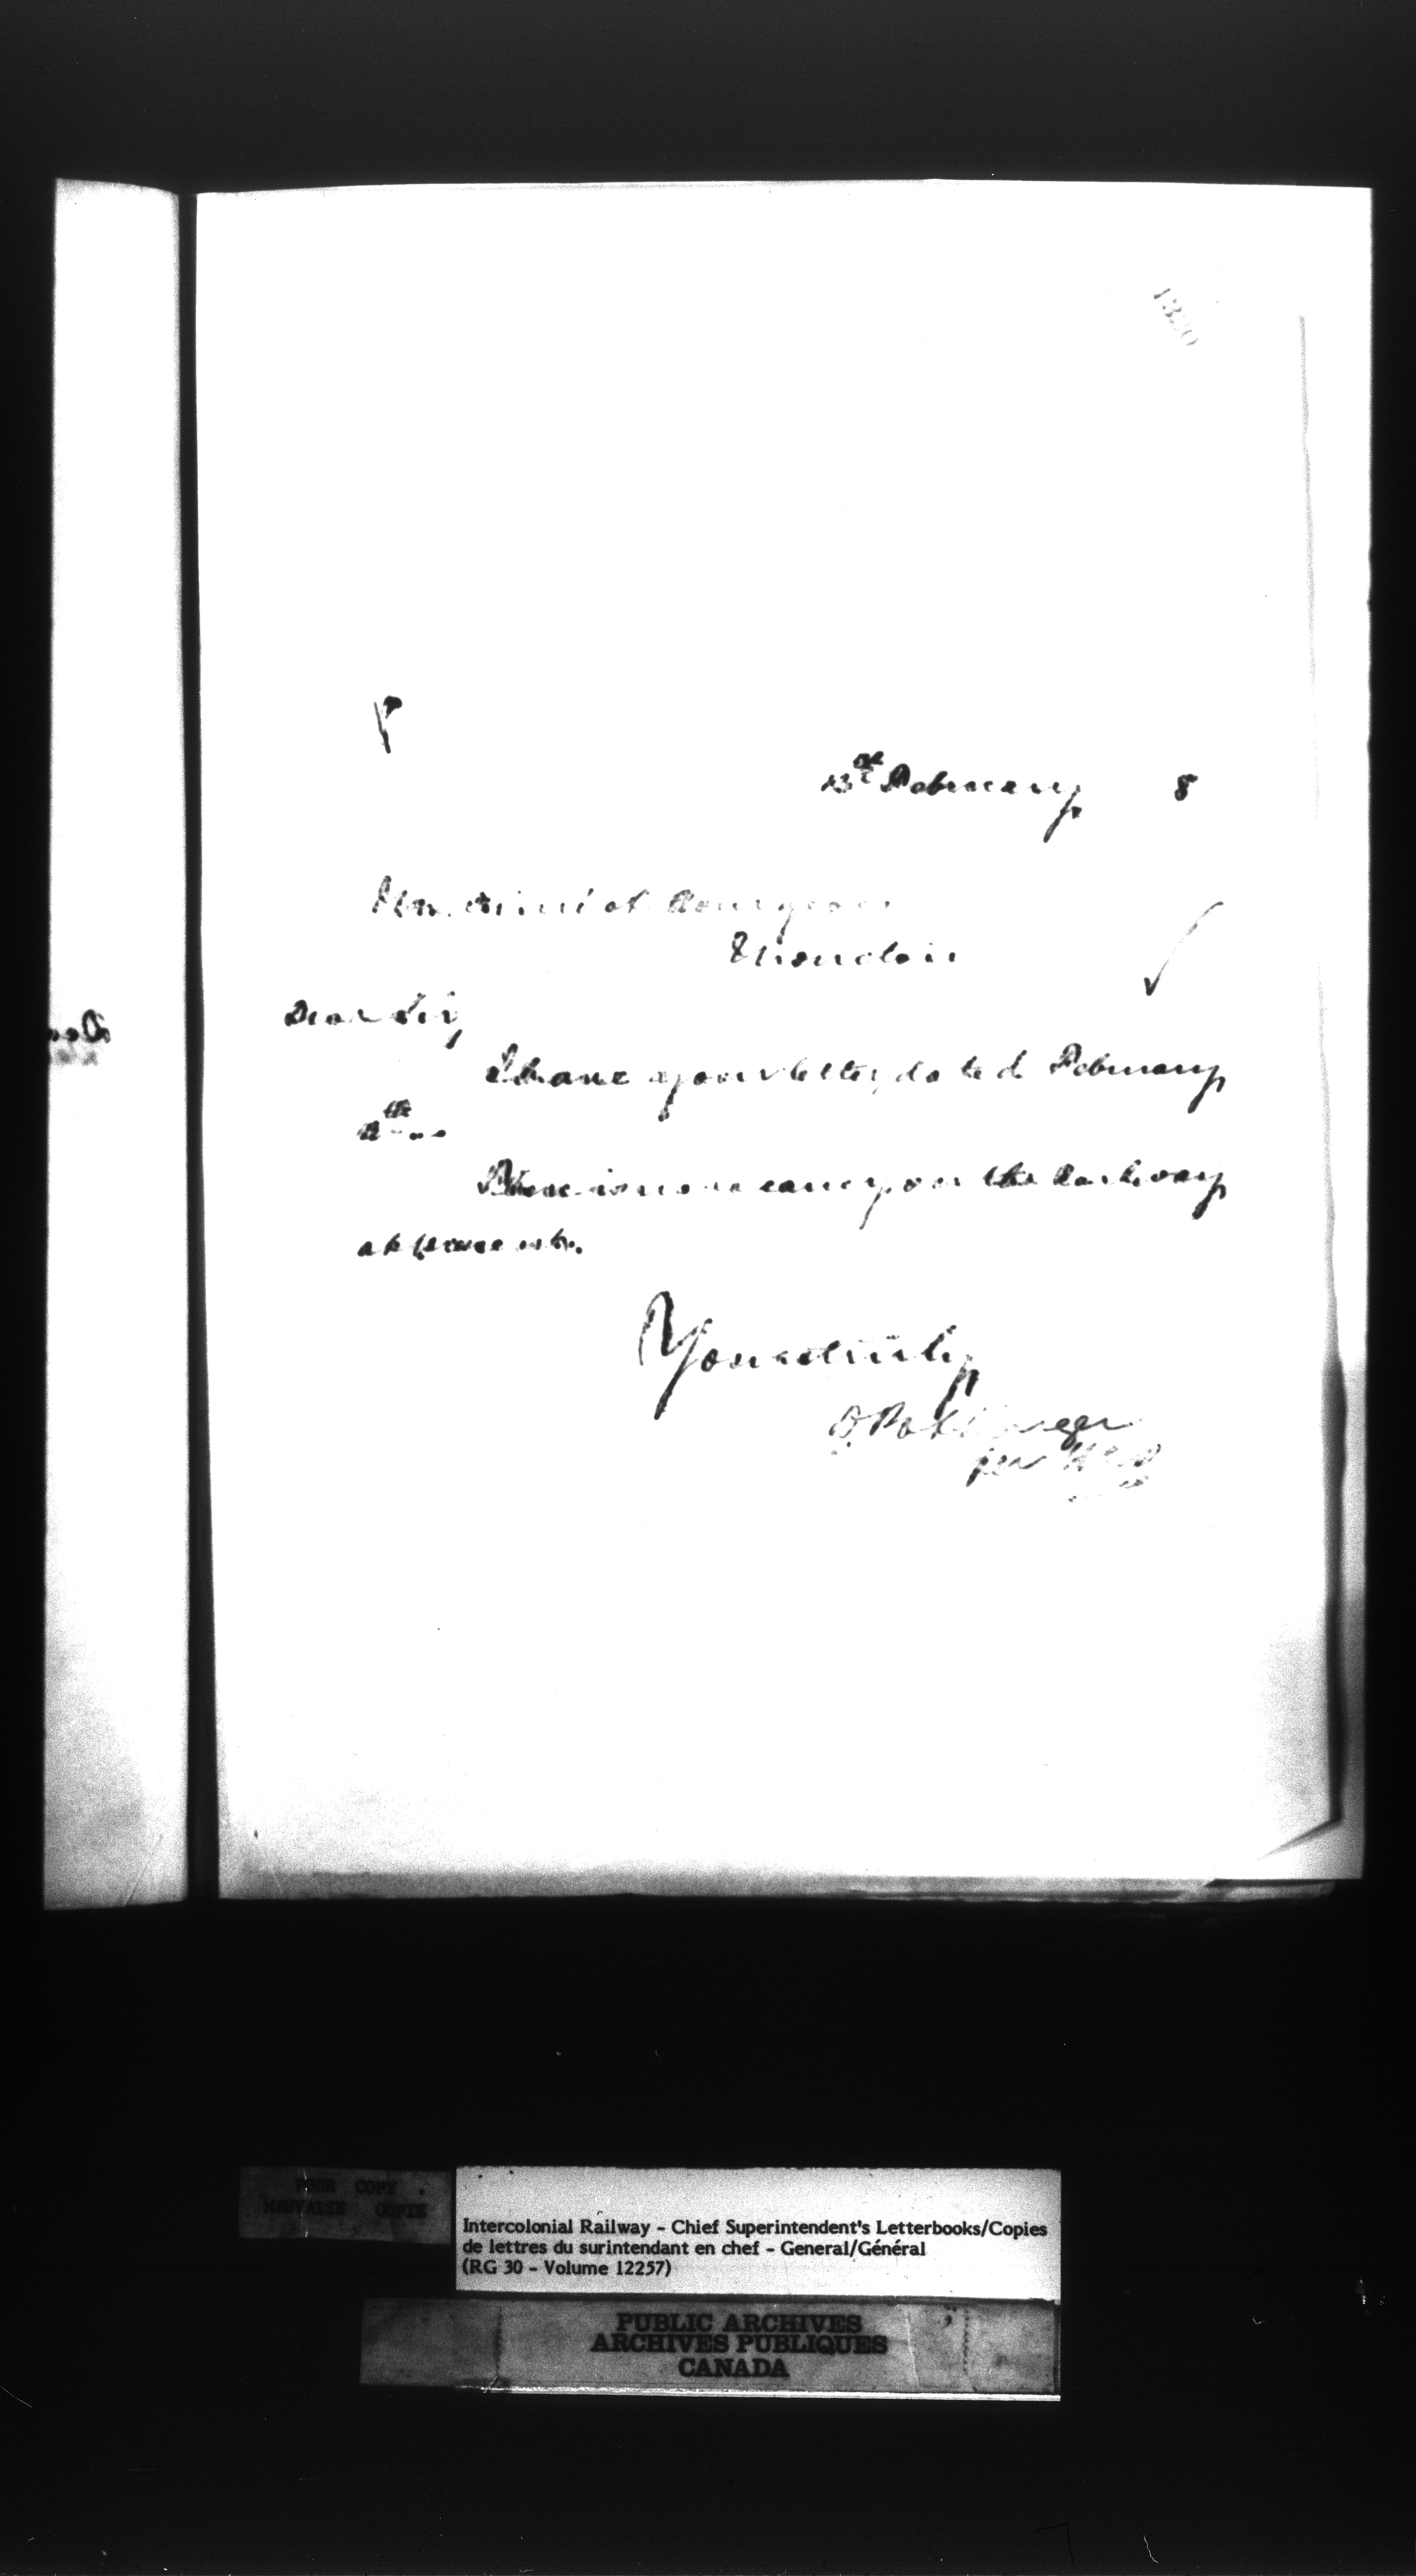 1320
P
13th February 8
Bourgeois
Moncton
Dear Sir,
I have your letter dated February
11th
There is no vacancy on the Railway
at present.
Yours truly
D Pottinger
per
POOR COPY
MAUVAISE COPIE
Intercolonial Railway - Chief Superintendent's Letterbooks/Copies
de lettres du surintendant en chef - General/Général
(RG 30 - Volume 12257)
PUBLIC ARCHIVES
ARCHIVES PUBLIQUES
CANADA